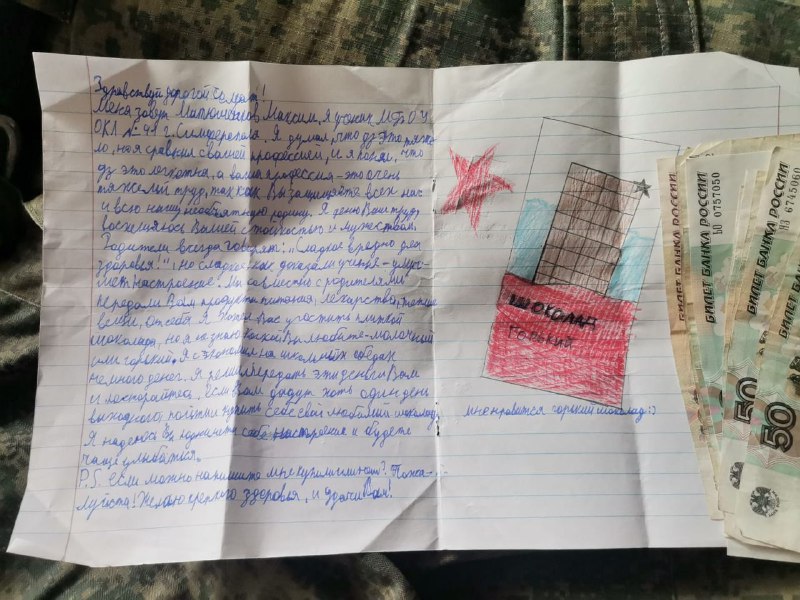 Здравствуй дорогой Солдат!
Меня зовут Максим, я ученик МБОУ
ОКЛ № 48 г. Симферополя. Я думал, что дз это тяже-
ло, но я сравнил с вашей профессией, и я понял, что
дз это легкотня, а ваша профессия - это очень
тяжелый труд, так как Вы защищаете всех нас
и всю нашу необъятную родину. Я ценю Ваш труд
восхищаюсь Вашей стойкостью и мужеством.
Родители всегда говорят: "Сладкое вредно для
здоровья!", но сладкое как доказали ученые - улуч-
шает настроение! Мы совместно с родителями
передали Вам продукты питания, лекарства, теплые
вещи, от себя я хотел Вас угостить плиткой
шоколада, но я не знаю какой Вы любите - молочный
или горький. Я сэкономил на школьных обедах
немного денег. Я решил передать эти деньги Вам
и постарайтесь, если Вам дадут хоть один день
выходного пойти и купить себе свой любимый шоколад.
Я надеюсь Вы поднимите себе настроение и будете
чаще улыбаться.
P.S. если можно напишите мне купили или нет? Пожа-
луйста! Желаю крепкого здоровья, и удачи Вам!
ШОКОЛАД
Горький
мне нравится горький шоколад :)
БИЛЕТ БАНКА РОССИИ
БИЛЕТ БАНКА РОССИИ
БО 0757050
50
БИЛЕТ БАНКА РОССИИ
6745060
50